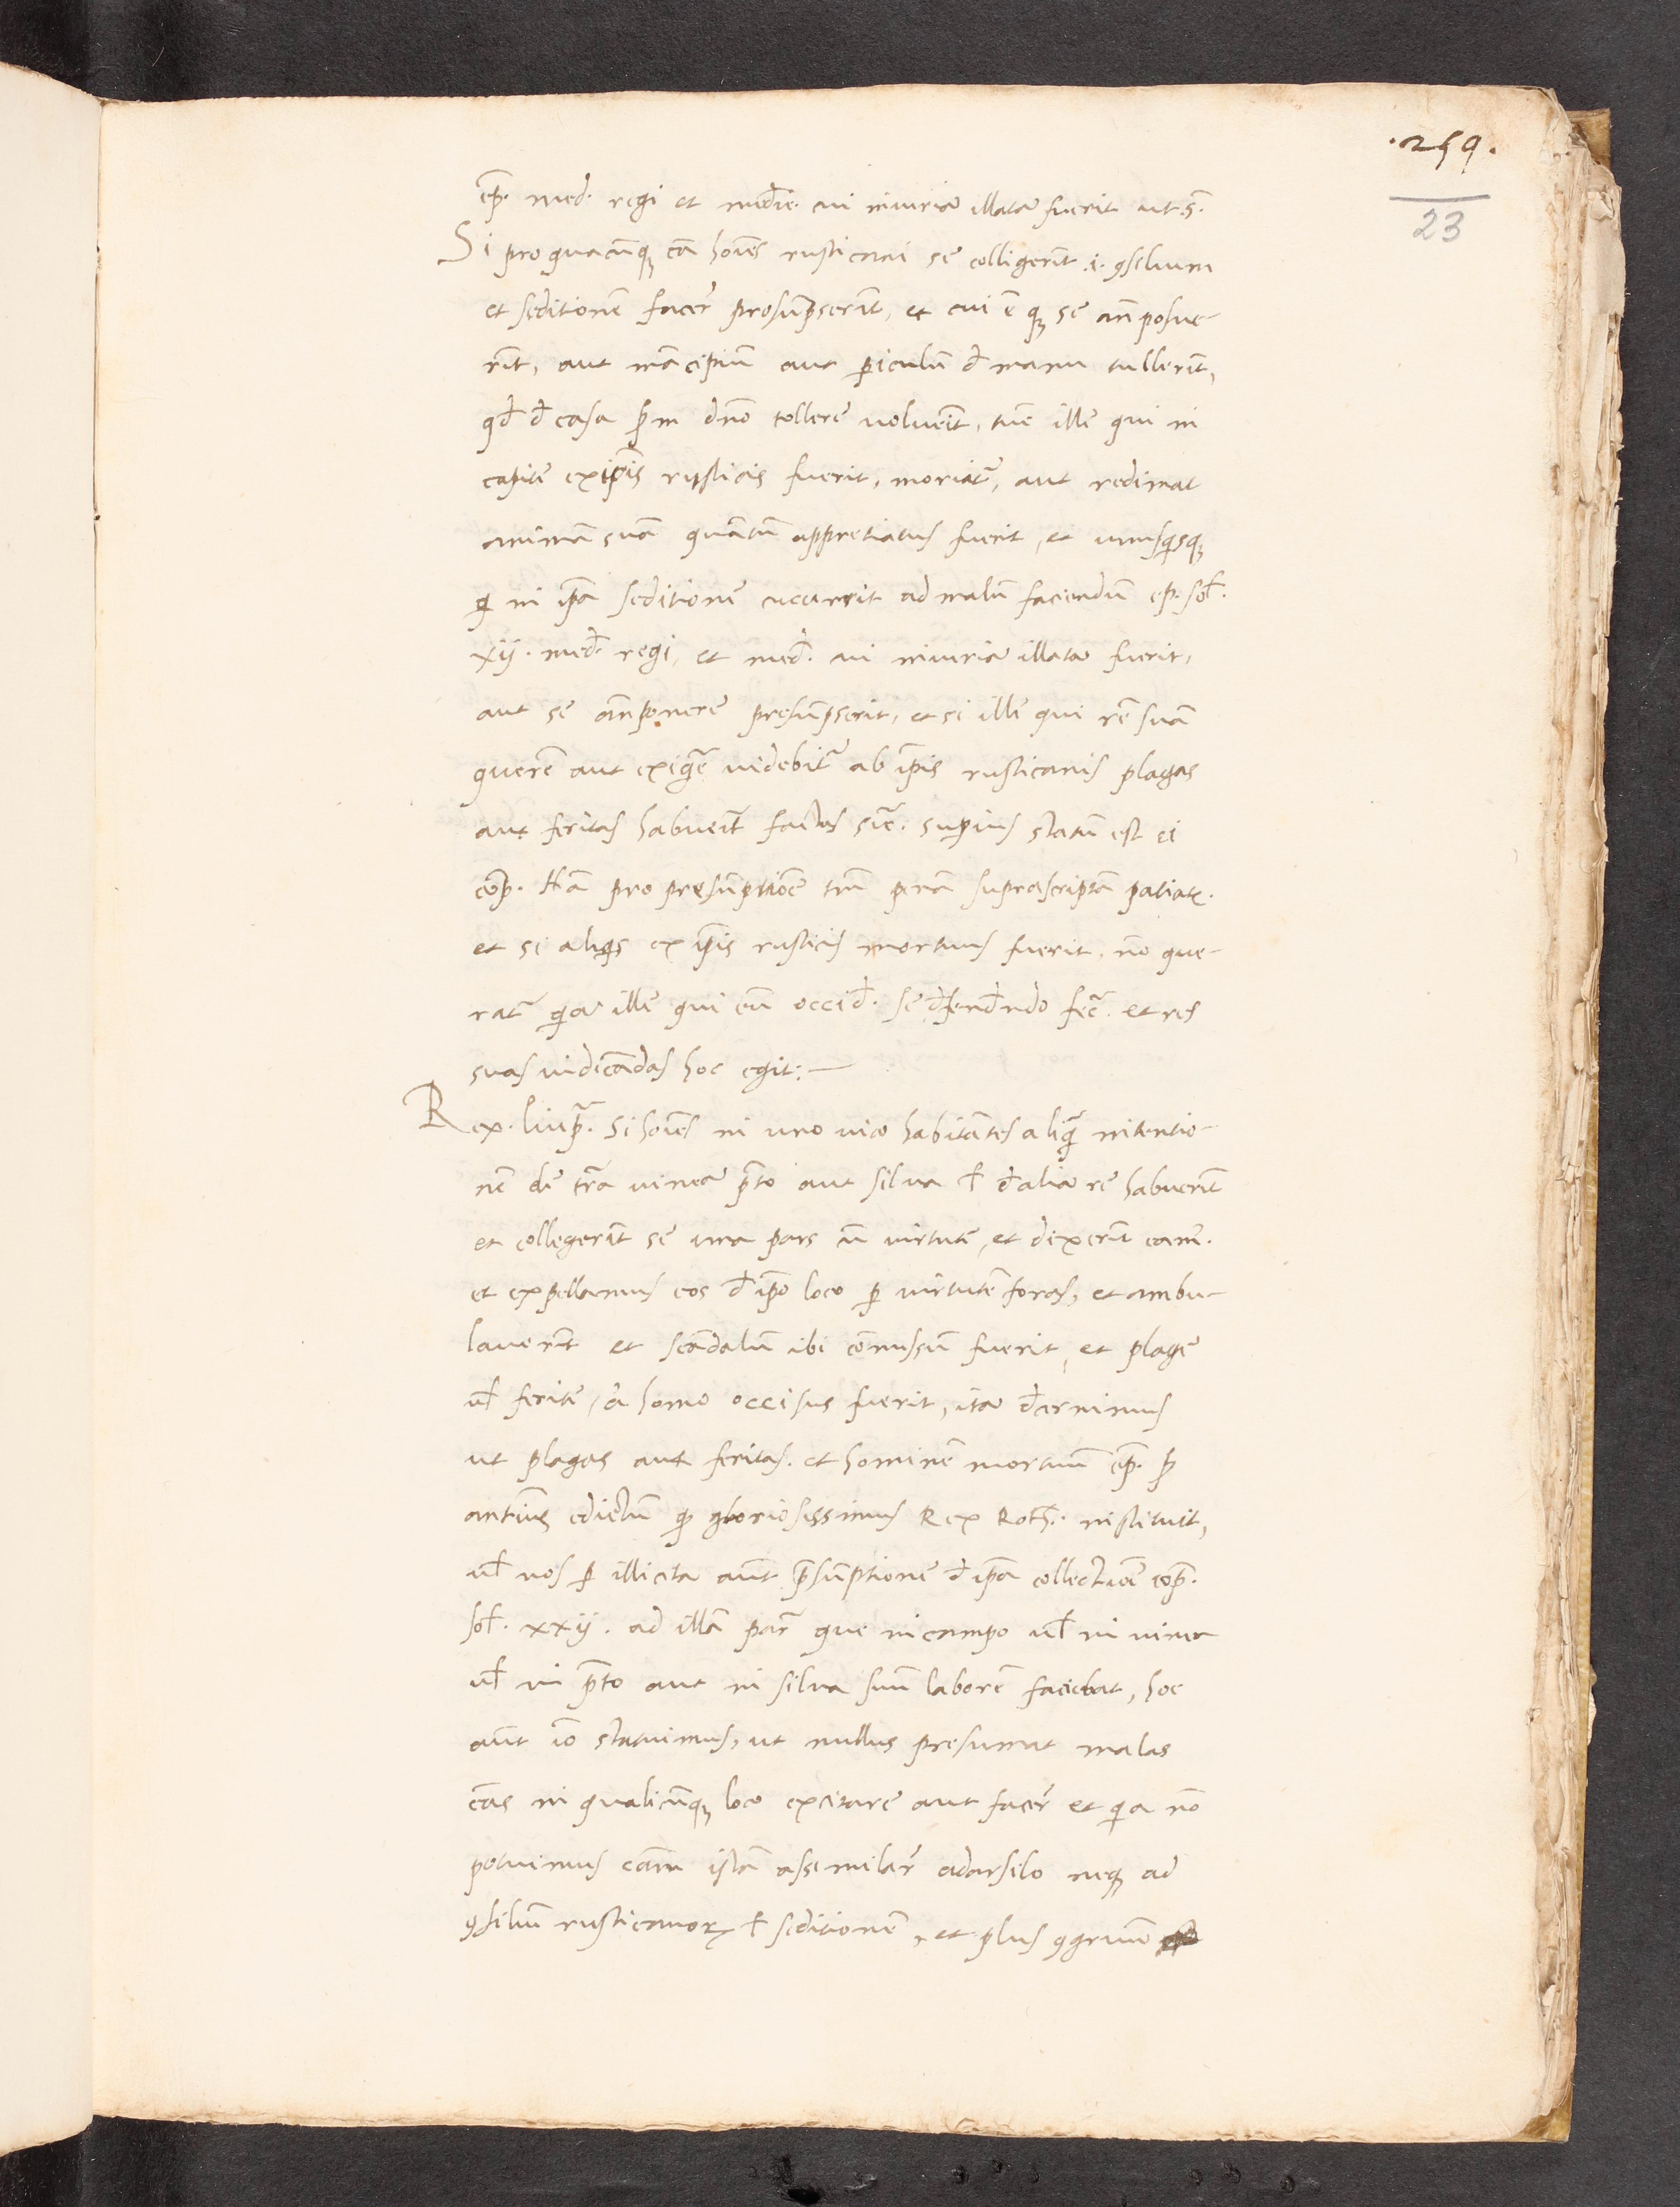 .259.
23
cp̄. med. regi et medie. cui iniuria illata fuerit ut. s̄.
Si pro quacūq; cā hōies rusticani se colligerīt .i. ꝯsilium
et seditionē facer̄ presūpserīt, et cui ē q; se an̄posue-
rīt, aut mācipiū aut ꝑiculū đ manu tullerīt,
qđ đ casa ser̄ui dn̄o tollere voluerīt, tūc ille qui in
capite ex ip̄is rusticis fuerit, moriat̄, aut redimat
animā suā quātū appretiatus fuerit, et unusqsq;
qi in ip̄a seditione cucurrit ad malū faciendū cp̄. sol.
xij. med. regi, et med. cui iniuria illata fuerit,
aut se an̄ponere presūpserit, et si ille qui rē suā
querere aut exigere videbit̄ ab ip̄is rusticanis plagas
aut feritas habuerīt factas sic̄. superius statū est ei
cōp. Nā pro presūptiōe tm̄ penā suprascriptā patiat̄.
et si aliqs ex ip̄is rusticis mortuus fuerit. nō que-
rat̄ qia ille qui eū occiđ. se đfendendo fec̄. et res
suas vidicādas hoc egit:—
Rex. liup̄r. Si hōies in uno vico habitātes aliq̄ intentio-
nē de tr̄a vinea p̄to aut silva ł đ alia re habuerīt
et collegerīt se una pars cū virtute, et dixerīt eam.
et expellamus eos đ ip̄o loco ꝑ virtutē foras, et ambu-
laverīt et scādalū ibi cōmissū fuerit, et plage
uł ferite, a homo occisus fuerit, ita đcernimus
ut plagas aut feritas. et hominē mortuū cp̄. ꝑ
antius edictū qd gloriosissimus Rex Roth̄. instituit,
uł nos ꝑ illicita aūt p̄sūptione đ ip̄a collectiōe cōp̄.
sol. xxij. ad illā par̄ que in campo uł in vinea
uł in p̄to aut in silva suū laborē faciebat, hoc
aūt iō statuimus, ut nullus presumat malas
cās in qualicūq; loco excitare aut facer̄ et qia nō
potuimus cām istā assimilar̄ ad arsilo neq; ad
ꝯsiliū rusticanoꝝ ł seditionē, et plus ꝯgruū